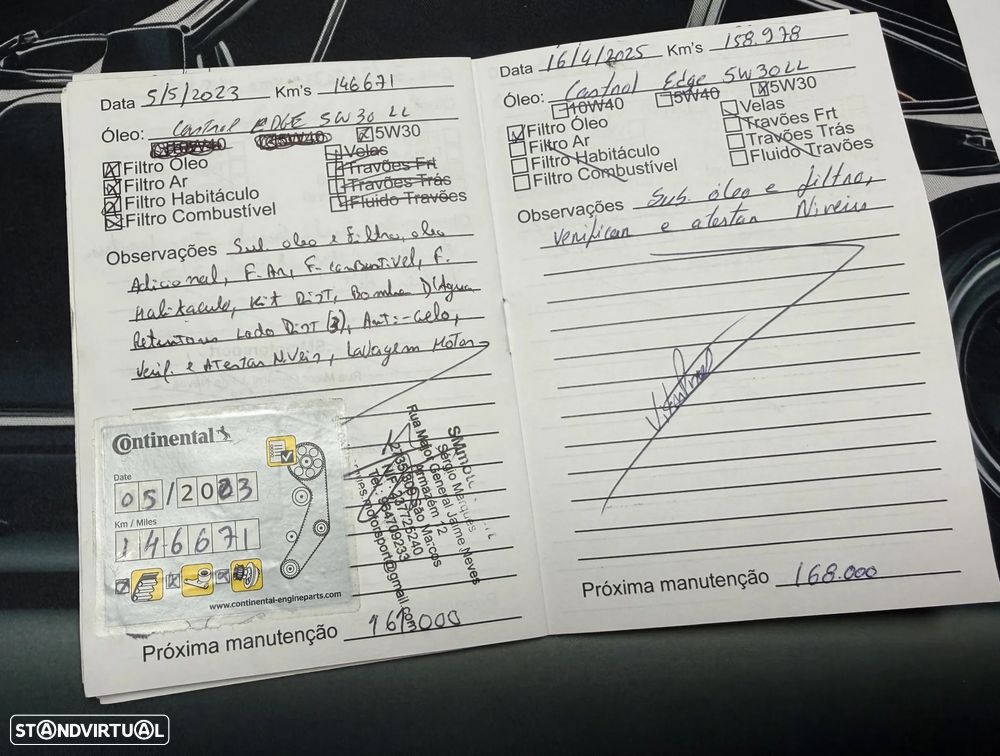 Data 5/5/2023 Km's 146671
Óleo: Castrol EDGE 5W30 LL
10W40 5W40 5W30
Filtro Óleo Velas
Filtro Ar Travões Frt
Filtro Habitáculo Travões Trás
Filtro Combustível Fluido Travões
Observações Sub óleo e Filtro, óleo
Adicional, F. Ar, F. Combustivel, F.
Habitaculo, Kit Dist, Bomba D'Água
Retentores Lado Dist (3), Anti-Gelo,
Verif. e Atestar Niveis, Lavagem Motor
Continental
Date
05/2023
Km / Miles
146671
www.continental-engineparts.com
Sérgio Marques
Rua Major General Jaime Neves
Armazém 12
São Marcos
Próxima manutenção 161000
Data 16/4/2025 Km's 158.978
Óleo: Castrol Edge 5W30 LL
10W40 5W40 5W30
Filtro Óleo Velas
Filtro Ar Travões Frt
Filtro Habitáculo Travões Trás
Filtro Combustível Fluido Travões
Observações Sub. óleo e filtro,
verificar e atestar Niveis
Próxima manutenção 168.000
STANDVIRTUAL